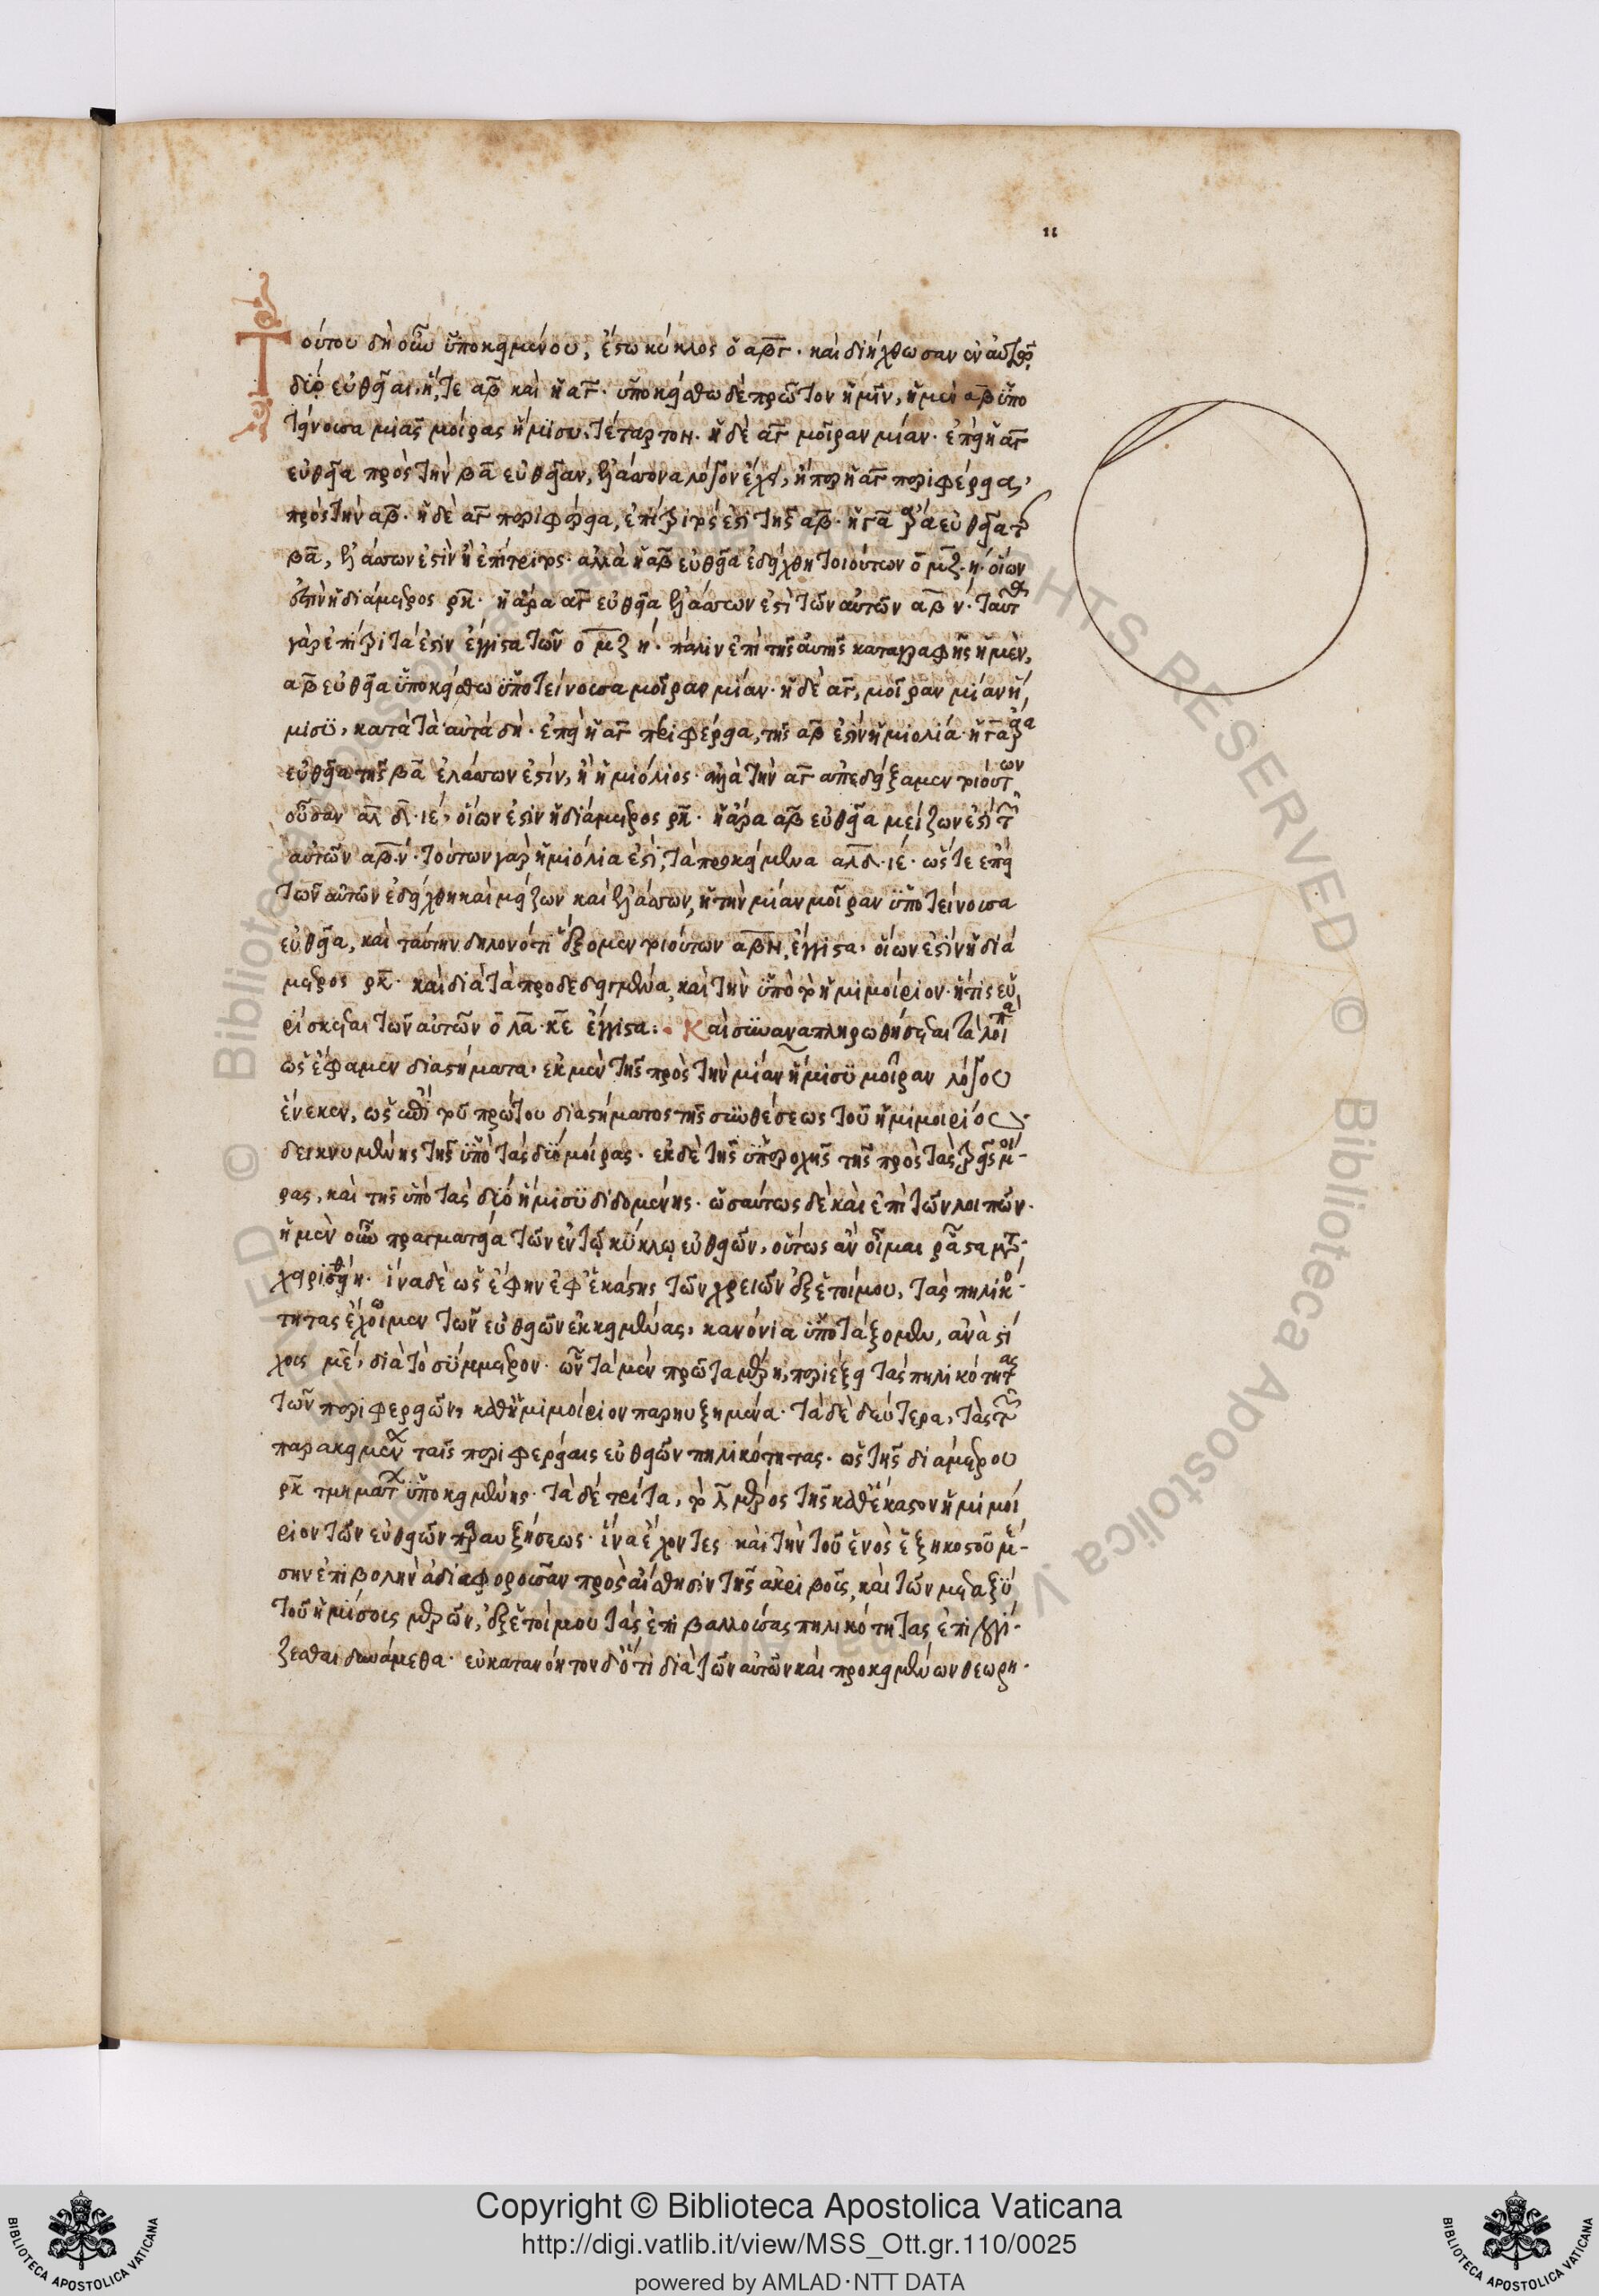 11
Τούτου δὴ οὖν ὑποκειμένου, ἔστω κύκλος ὁ αβγ· καὶ διήχθωσαν ἐν αὐτῷ
δύο εὐθεῖαι, ἥ τε αβ καὶ ἡ αγ· ὑποκείσθω δὲ πρῶτον ἡμῖν, ἡ μὲν αβ ὑπο
τείνουσα μιᾶς μοίρας ἥμισυ τέταρτον· ἡ δὲ αγ μοῖραν μίαν· ἐπεὶ ἡ αγ
εὐθεῖα πρὸς τὴν βα εὐθεῖαν, ἐλάσσονα λόγον ἔχει, ἤπερ ἡ αγ περιφέρεια,
πρὸς τὴν αβ· ἡ δὲ αγ περιφέρεια, ἐπίτριτός ἐστι τῆς αβ· ἡ γα ἄρα εὐθεῖα τῆς
βα, ἐλάσσων ἐστὶν ἢ ἐπίτριτος· ἀλλὰ ἡ αβ εὐθεῖα ἐδείχθη τοιούτων ο μζ η· οἵων
ἐστὶν ἡ διάμετρος ρκ· ἡ ἄρα αγ εὐθεῖα ἐλάσσων ἐστὶ τῶν αὐτῶν α β ν· ταῦτα
γὰρ ἐπίτριτά ἐστιν ἔγγιστα τῶν ο μζ η· πάλιν ἐπὶ τῆς αὐτῆς καταγραφῆς ἡ μὲν,
αβ εὐθεῖα ὑποκείσθω ὑποτείνουσα μοῖραν μίαν· ἡ δὲ αγ, μοῖραν μίαν ἥ
μισυ, κατὰ τὰ αὐτὰ δὴ· ἐπεὶ ἡ αγ περιφέρεια, τῆς αβ ἐστὶν ἡμιολία· ἡ γα ἄρα
εὐθεῖα τῆς βα ἐλάσσων ἐστίν, ἢ ἡμιόλιος· ἀλλὰ τὴν αγ ἀπεδείξαμεν τοιούτων
οὖσαν α λδ ιε, οἵων ἐστὶν ἡ διάμετρος ρκ· ἡ ἄρα αβ εὐθεῖα μείζων ἐστὶ τῶν
αὐτῶν α β ν· τούτων γὰρ ἡμιόλιά ἐστι, τὰ προκείμενα α λδ ιε· ὥστε ἐπεὶ
τῶν αὐτῶν ἐδείχθη καὶ μείζων καὶ ἐλάσσων, ἡ τὴν μίαν μοῖραν ὑποτείνουσα
εὐθεῖα, καὶ ταύτην δηλονότι ἕξομεν τοιούτων α β ν, ἔγγιστα, οἵων ἐστὶν ἡ διά
μετρος ρκ· καὶ διὰ τὰ προδεδειγμένα, καὶ τὴν ὑπὸ τὸ ἡμιμοίριον· ἥτις εὑ
ρίσκεται τῶν αὐτῶν ο λα κε ἔγγιστα· Καὶ συναναπληρωθήσεται τὰ λοιπὰ
ὡς ἔφαμεν διαστήματα, ἐκ μὲν τῆς πρὸς τὴν μίαν ἥμισυ μοῖραν λόγου
ἕνεκεν, ὡς ἐπὶ τοῦ πρώτου διαστήματος τῆς συνθέσεως τοῦ ἡμιμοιρίου
δεικνυμένης τῆς ὑπὸ τὰς δύο μοίρας· ἐκ δὲ τῆς ὑπεροχῆς τῆς πρὸς τὰς τρεῖς μοί
ρας, καὶ τῆς ὑπὸ τὰς δύο ἥμισυ διδομένης· ὡσαύτως δὲ καὶ ἐπὶ τῶν λοιπῶν·
ἡ μὲν οὖν πραγματεία τῶν ἐν τῷ κύκλῳ εὐθειῶν, οὕτως ἂν οἶμαι ῥᾷστα μετα
χειρισθείη· ἵνα δὲ ὡς ἔφην ἐφ' ἑκάστης τῶν χρειῶν ἐξ ἑτοίμου, τὰς πηλικό
τητας ἔχωμεν τῶν εὐθειῶν ἐκκειμένας, κανόνια ὑποτάξομεν, ἀνὰ στί
χους με, διὰ τὸ σύμμετρον· ὧν τὰ μὲν πρῶτα μέρη, περιέξει τὰς πηλικότητας
τῶν περιφερειῶν, καθ' ἡμιμοίριον παρηυξημένα· τὰ δὲ δεύτερα, τὰς τῶν
παρακειμένων ταῖς περιφερείαις εὐθειῶν πηλικότητας· ὡς τῆς διαμέτρου
ρκ τμημάτων ὑποκειμένης· τὰ δὲ τρίτα, τὸ λ μέρος τῆς καθ' ἕκαστον ἡμιμοί
ριον τῶν εὐθειῶν παραυξήσεως· ἵνα ἔχοντες καὶ τὴν τοῦ ἑνὸς ἑξηκοστοῦ μέ
σην ἐπιβολὴν ἀδιαφοροῦσαν πρὸς αἴσθησιν τῆς ἀκριβοῦς, καὶ τῶν μεταξὺ
τοῦ ἡμίσους μερῶν, ἐξ ἑτοίμου τὰς ἐπιβαλλούσας πηλικότητας ἐπιλογί
ζεσθαι δυνάμεθα· εὐκατανόητον δ' ὅτι διὰ τῶν αὐτῶν καὶ προκειμένων θεωρη
Copyright © Biblioteca Apostolica Vaticana
http://digi.vatlib.it/view/MSS_Ott.gr.110/0025
powered by AMLAD·NTT DATA